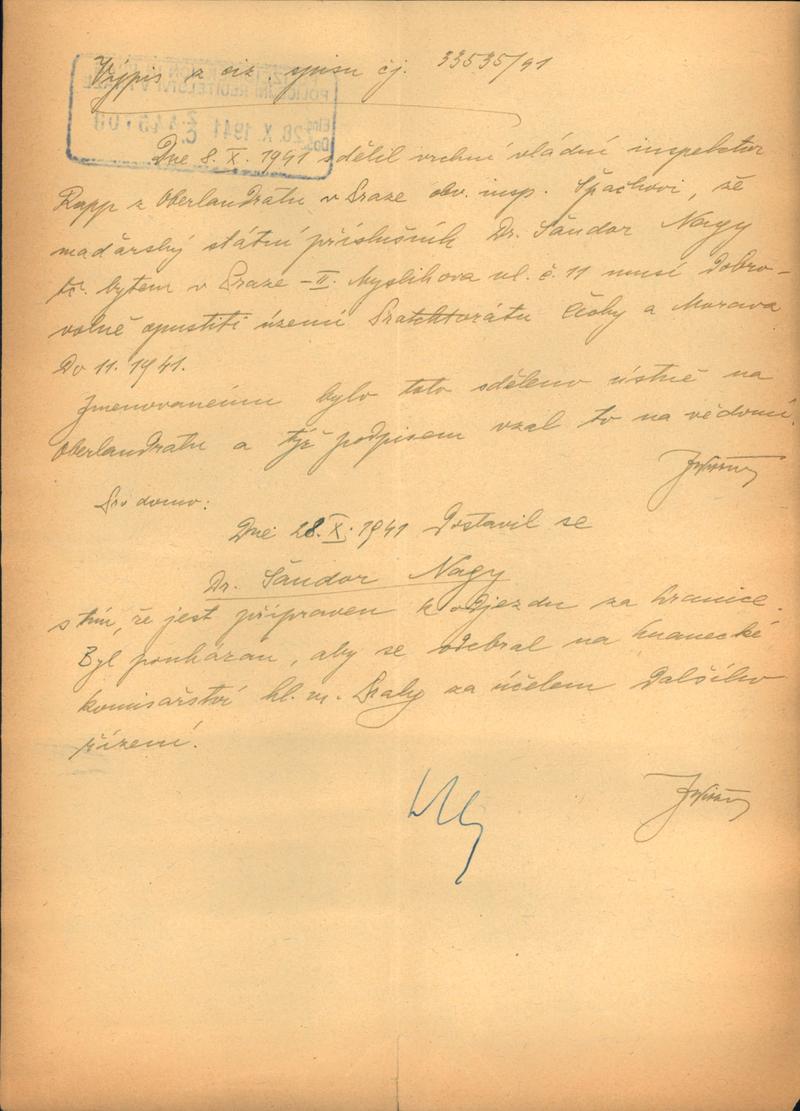 Výpis z ciz. spisu čj. 33535/41
Dne 8. X. 1941 sdělil vrchní vládní inspektor
Rapp z Oberlandrátu v Praze obv. insp. Špachovi, že
maďarský státní příslušník Dr. Šándor Nagy
tč. bytem v Praze – II. Myslíkova ul. č. 11 musí dobro-
volně opustiti území Protektorátu Čechy a Morava
do 11. 1941.
Jmenovanému bylo toto sděleno ústně na
Oberlandrátu a týž podpisem vzal to na vědomí.
Pro domo:
Dne 28. X. 1941 dostavil se
Dr. Šándor Nagy
s tím, že jest připraven k odjezdu za hranice.
Byl poukázán, aby se odebral na
komisařství hl. m. Prahy za účelem dalšího
řízení.